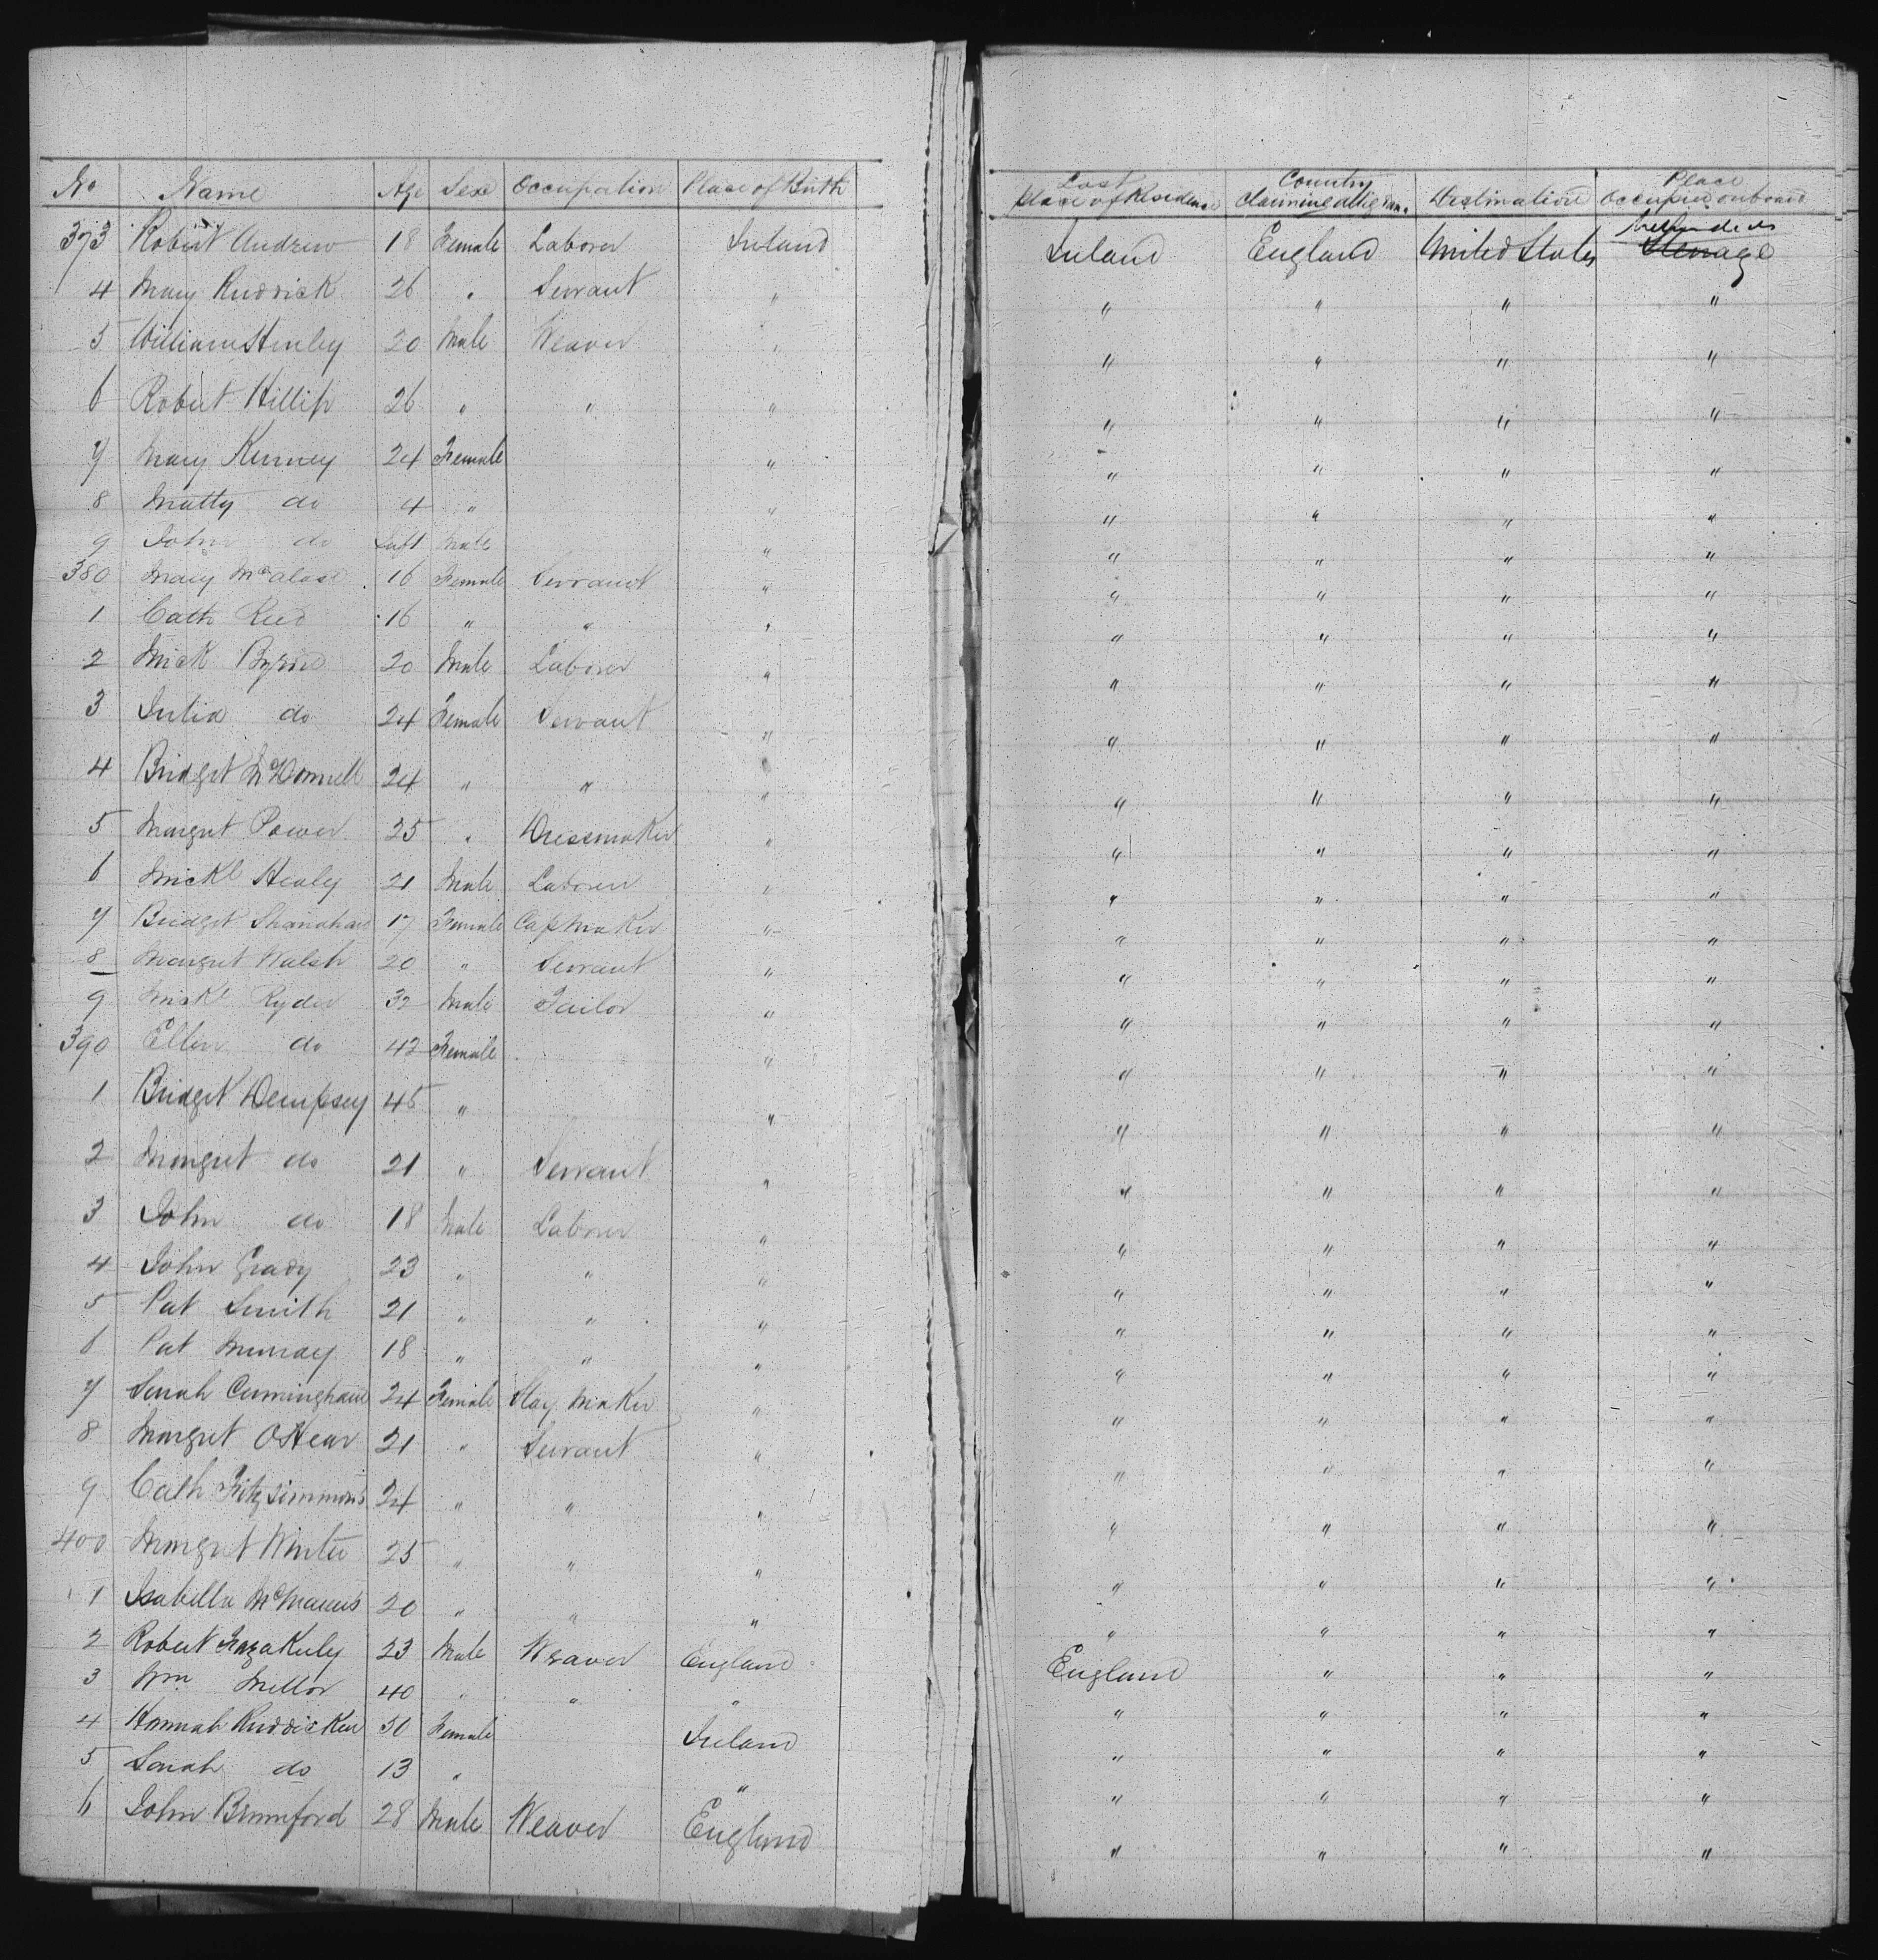 No Name Age Sex Occupation Place of Birth
373 Robert Andrew 18 Female Laborer Ireland
4 Mary Ruddick 26 " Servant "
5 William Henley 20 Male Weaver "
6 Robert Hillip 26 " " "
7 Mary Kenney 24 Female "
8 Matty do 4 " "
9 John do Inft Male "
380 Mary 16 Female Servant "
1 Cath Reed 16 " " "
2 Mick Byrne 20 Male Laborer "
3 Julia do 24 Female Servant "
4 Bridget McDonnell 24 " " "
5 Margret Power 25 " Dressmaker "
6 Mickl Healy 21 Male Laborer "
7 Bridget Shanahan 17 Female Cap Maker "
8 Margret Walsh 20 " Servant "
9 Mickl Ryder 32 Male Tailor "
390 Ellen do 42 Female "
1 Bridget Dempsey 45 " "
2 Margret do 21 " Servant "
3 John do 18 Male Laborer "
4 John Grady 23 " " "
5 Pat Smith 21 " " "
6 Pat Murray 18 " " "
7 Sarah Cunningham 24 Female Stay Maker "
8 Margret OHear 21 " Servant "
9 Cath Fitzsimmons 24 " " "
400 Margret Winter 25 " " "
1 Isabella McManus 20 " " "
2 Robert Frazakerly 23 Male Weaver England
3 Wm Mellor 40 " " "
4 Hannah Ruddicken 50 Female Ireland
5 Sarah do 13 " "
6 John Brumford 28 Male Weaver England
Last Place of Residence Country Claiming allegian. Destination Place Occupied onboard
Between decks
Ireland England United States Steerage
" " " "
" " " "
" " " "
" " " "
" " " "
" " " "
" " " "
" " " "
" " " "
" " " "
" " " "
" " " "
" " " "
" " " "
" " " "
" " " "
" " " "
" " " "
" " " "
" " " "
" " " "
" " " "
" " " "
" " " "
" " " "
" " " "
" " " "
" " " "
England " " "
" " " "
" " " "
" " " "
" " " "